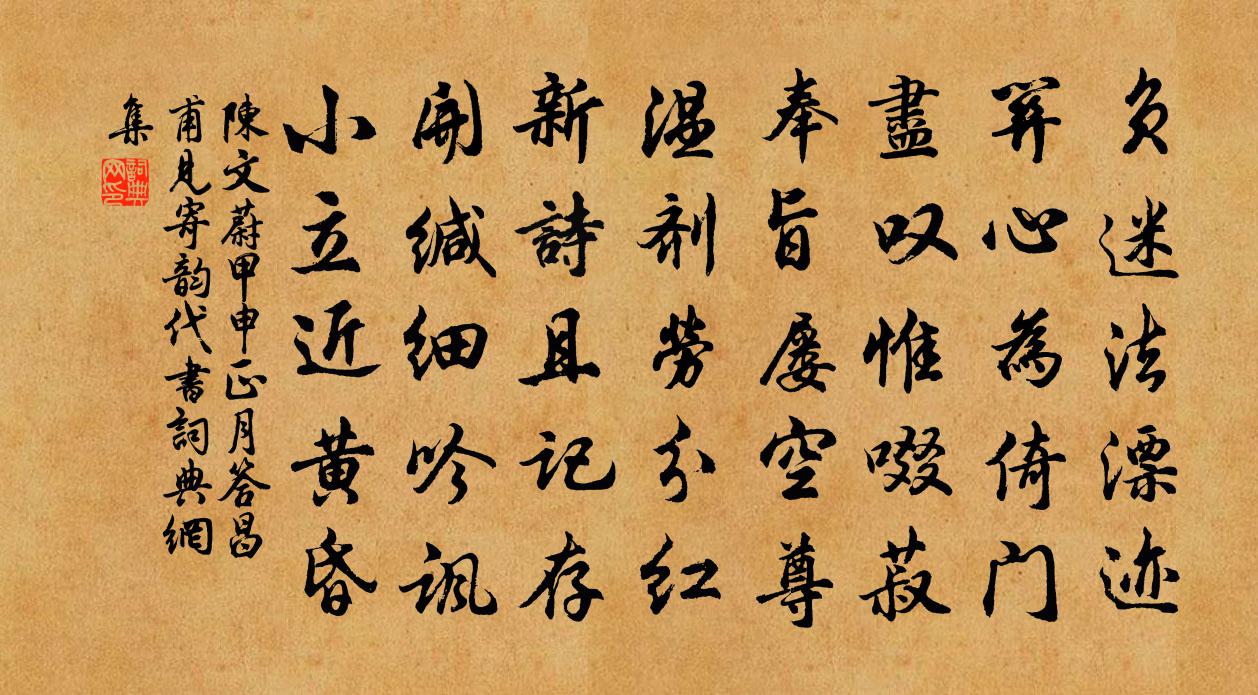 负迷法漂迹
心為倚门
盡叹惟啜菽
奉旨屡空尊
温剂勞分红
新詩且记存
開缄细吟讽
小立近黄昏
陳文蔚甲申正月答昌
甫見寄韵代書詞典網
集
詞典网印